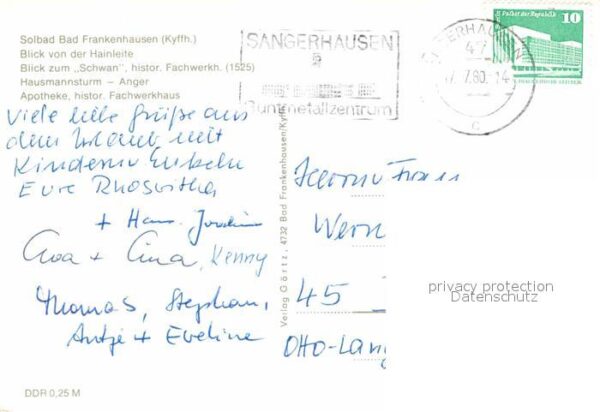 Solbad Bad Frankenhausen (Kyffh.)
Blick von der Hainleite
Blick zum „Schwan", histor. Fachwerkh. (1525)
Hausmannsturm – Anger
Apotheke, histor. Fachwerkhaus
Viele liebe Grüße aus
dem Urlaub mit
Kindern u. Enkeln
Eure Rhoswitha
+ Hans-Joachim
+ Gina, Kenny
Thomas, Stephan,
Antje + Eveline
DDR 0,25 M
Verlag Görtz, 4732 Bad Frankenhausen/Kyffh.
SANGERHAUSEN
Buntmetallzentrum
47
7.80.-14
c
Palast der Republik
10
Herrn u Frau
Wern
45
Otto-Lan
privacy protection
Datenschutz